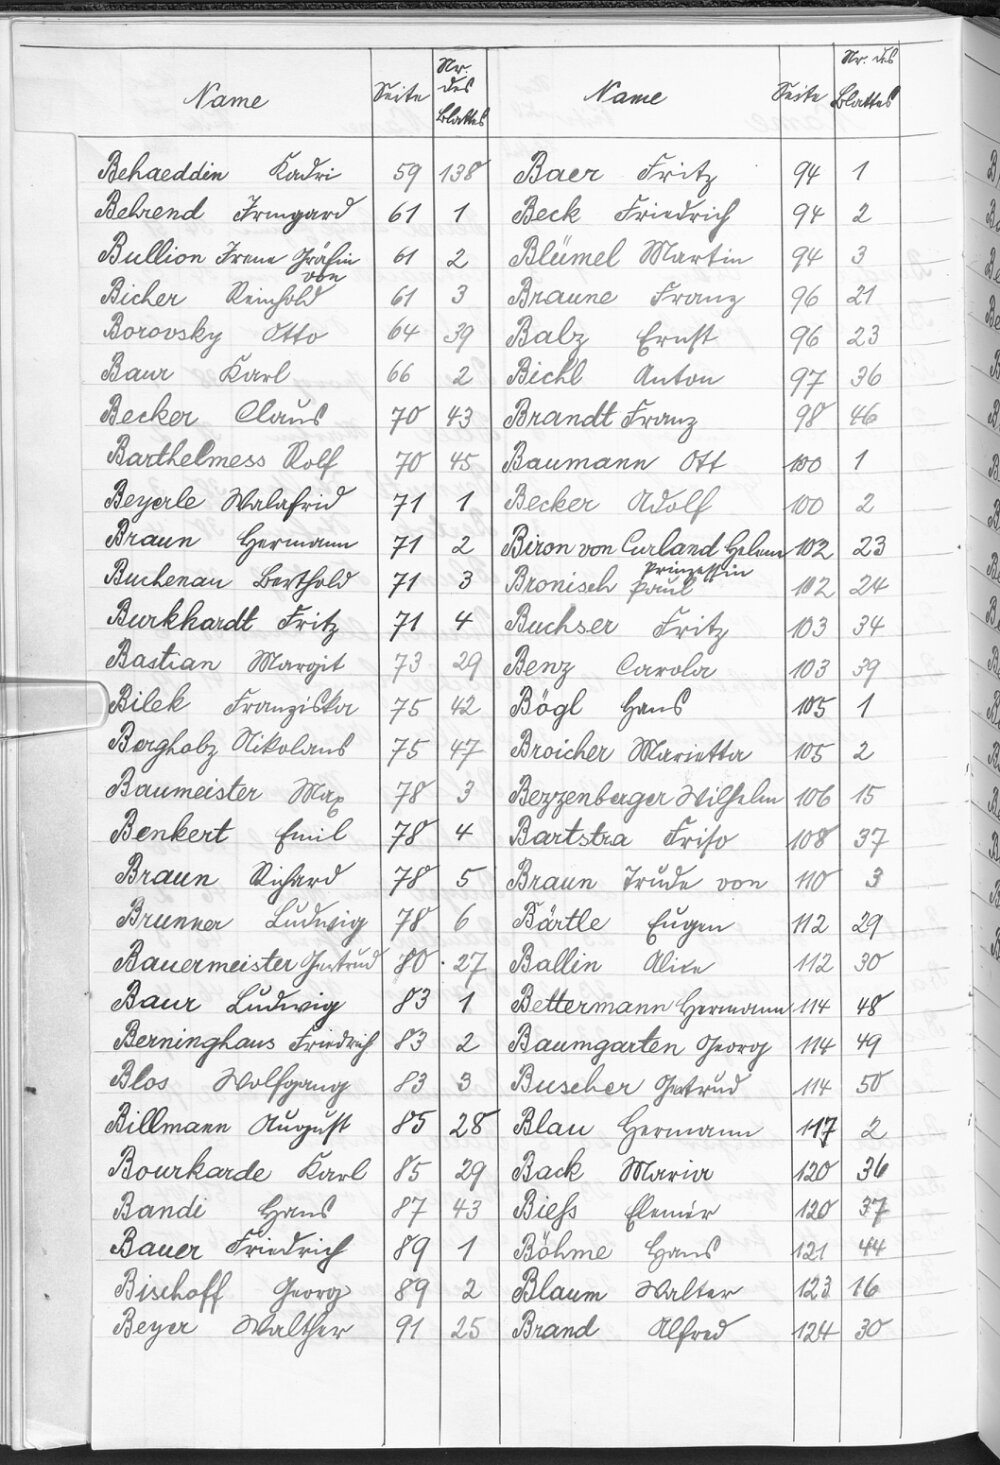 Name Seite Nr. des Blattes
Behaeddin Kadri 59 138
Behrend Irmgard 61 1
Bullion Irene Gräfin von 61 2
Bicher Reinhold 61 3
Borovsky Otto 64 39
Baur Karl 66 2
Becker Claus 70 43
Barthelmess Rolf 70 45
Beyerle Walafrid 71 1
Braun Hermann 71 2
Buchenau Berthold 71 3
Burkhardt Fritz 71 4
Bastian Margit 73 29
Bilek Franziska 75 42
Bergholz Nikolaus 75 47
Baumeister Max 78 3
Benkert Emil 78 4
Braun Richard 78 5
Brunner Ludwig 78 6
Bauermeister Gertrud 80 27
Baur Ludwig 83 1
Berninghaus Friedrich 83 2
Blos Wolfgang 83 3
Billmann August 85 28
Bourkarde Karl 85 29
Bandi Hans 87 43
Bauer Friedrich 89 1
Bischoff Georg 89 2
Beyer Walther 91 25
Name Seite Nr. des Blattes
Baer Fritz 94 1
Beck Friedrich 94 2
Blümel Martin 94 3
Braune Franz 96 21
Balz Ernst 96 23
Bichl Anton 97 36
Brandt Franz 98 46
Baumann Ott 100 1
Becker Adolf 100 2
Biron von Curland Helene 102 23
Prinzessin
Bronisch Paul 102 24
Buchser Fritz 103 34
Benz Carola 103 39
Bögl Hans 105 1
Broicher Marietta 105 2
Bezzenberger Wilhelm 106 15
Bartstra Friso 108 37
Braun Trude von 110 3
Bärtle Eugen 112 29
Ballin Alice 112 30
Bettermann Hermann 114 48
Baumgarten Georg 114 49
Buscher Gertrud 114 50
Blau Hermann 117 2
Back Maria 120 36
Biess Elemér 120 37
Böhme Hans 121 44
Blaum Walter 123 16
Brand Alfred 124 30